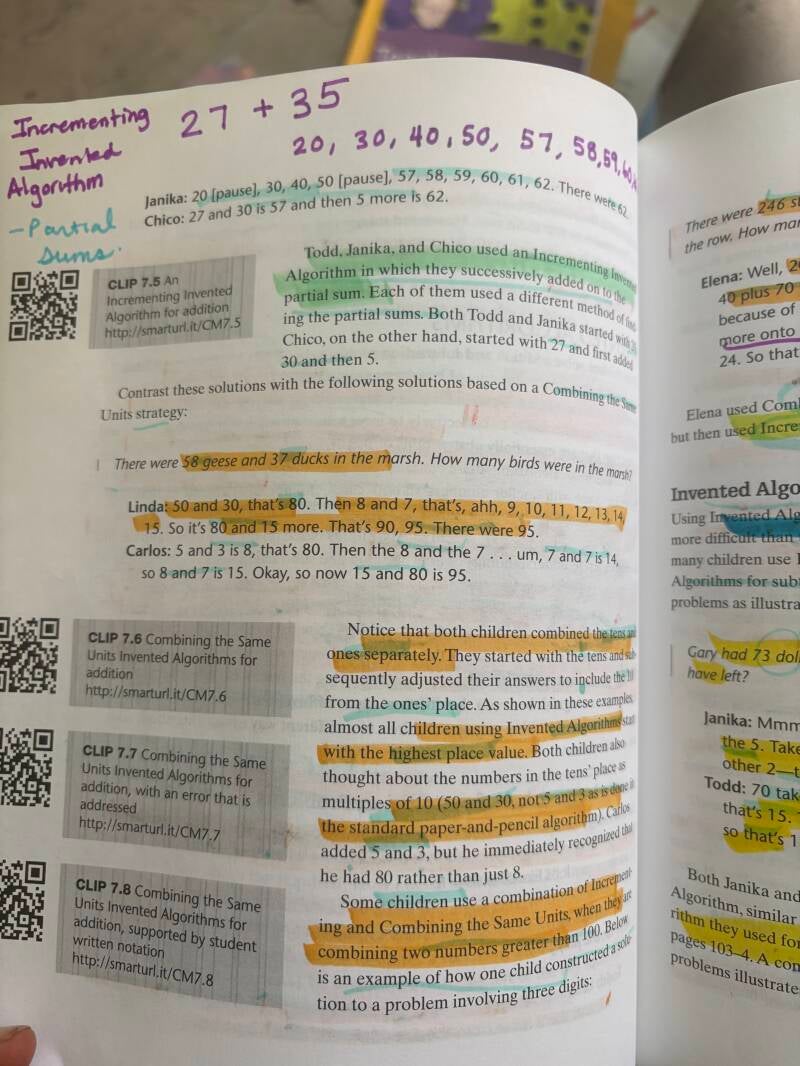 Incrementing
Invented
Algorithm
- Partial
Sums.
27 + 35
20, 30, 40, 50, 57, 58, 59, 60,
Janika: 20 [pause], 30, 40, 50 [pause], 57, 58, 59, 60, 61, 62. There were 62.
Chico: 27 and 30 is 57 and then 5 more is 62.
CLIP 7.5 An
Incrementing Invented
Algorithm for addition
http://smarturl.it/CM7.5
Todd, Janika, and Chico used an Incrementing
Algorithm in which they successively added on to the
partial sum. Each of them used a different method of
ing the partial sums. Both Todd and Janika started with
Chico, on the other hand, started with 27 and first added
30 and then 5.
Contrast these solutions with the following solutions based on a Combining the Same
Units strategy:
There were 58 geese and 37 ducks in the marsh. How many birds were in the marsh?
Linda: 50 and 30, that's 80. Then 8 and 7, that's, ahh, 9, 10, 11, 12, 13, 14,
15. So it's 80 and 15 more. That's 90, 95. There were 95.
Carlos: 5 and 3 is 8, that's 80. Then the 8 and the 7 . . . um, 7 and 7 is 14,
so 8 and 7 is 15. Okay, so now 15 and 80 is 95.
CLIP 7.6 Combining the Same
Units Invented Algorithms for
addition
http://smarturl.it/CM7.6
CLIP 7.7 Combining the Same
Units Invented Algorithms for
addition, with an error that is
addressed
http://smarturl.it/CM7.7
CLIP 7.8 Combining the Same
Units Invented Algorithms for
addition, supported by student
written notation
http://smarturl.it/CM7.8
Notice that both children combined the tens and
ones separately. They started with the tens and sub-
sequently adjusted their answers to include the
from the ones' place. As shown in these examples,
almost all children using Invented Algorithms start
with the highest place value. Both children also
thought about the numbers in the tens' place as
multiples of 10 (50 and 30, not 5 and 3 as is done in
the standard paper-and-pencil algorithm). Carlos
added 5 and 3, but he immediately recognized that
he had 80 rather than just 8.
Some children use a combination of Increment-
ing and Combining the Same Units, when they are
combining two numbers greater than 100. Below
is an example of how one child constructed a solu-
tion to a problem involving three digits:
There were 246
the row. How
Elena: Well,
40 plus 70
because of
more onto
24. So that
Elena used
but then used
Invented
Using Invented
more difficult than
many children use
Algorithms for
problems as illustra
Gary had 73
have left?
Janika:
the 5. Take
other 2—
Todd: 70
that's 15.
so that's 1
Both Janika and
Algorithm, similar
rithm they used for
pages 103–4. A
problems illustrate